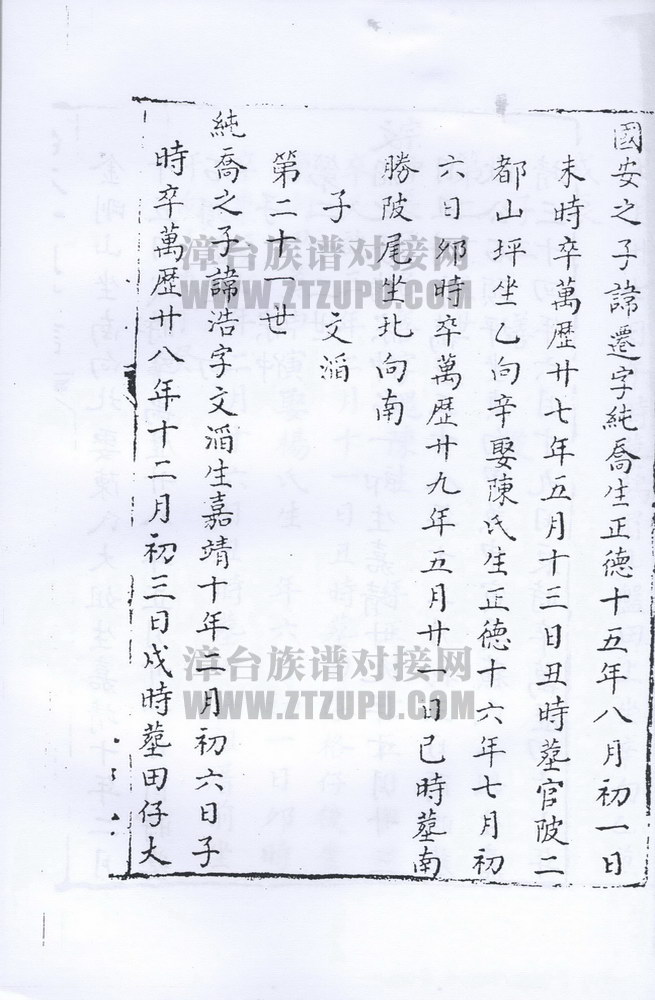 國安之子諱遷字純喬生正德十五年八月初一日
未時卒萬歷廿七年五月十三日丑時墓官陂二
都山坪坐乙向辛娶陳氏生正德十六年七月初
六日卯時卒萬歷廿九年五月廿一日巳時墓南
勝陂尾坐北向南
子 文滔
第二十一世
純喬之子諱浩字文滔生嘉靖十年二月初六日子
時卒萬歷廿八年十二月初三日戌時墓田仔大
漳台族谱对接网
WWW.ZTZUPU.COM
漳台族谱对接网
WWW.ZTZUPU.COM